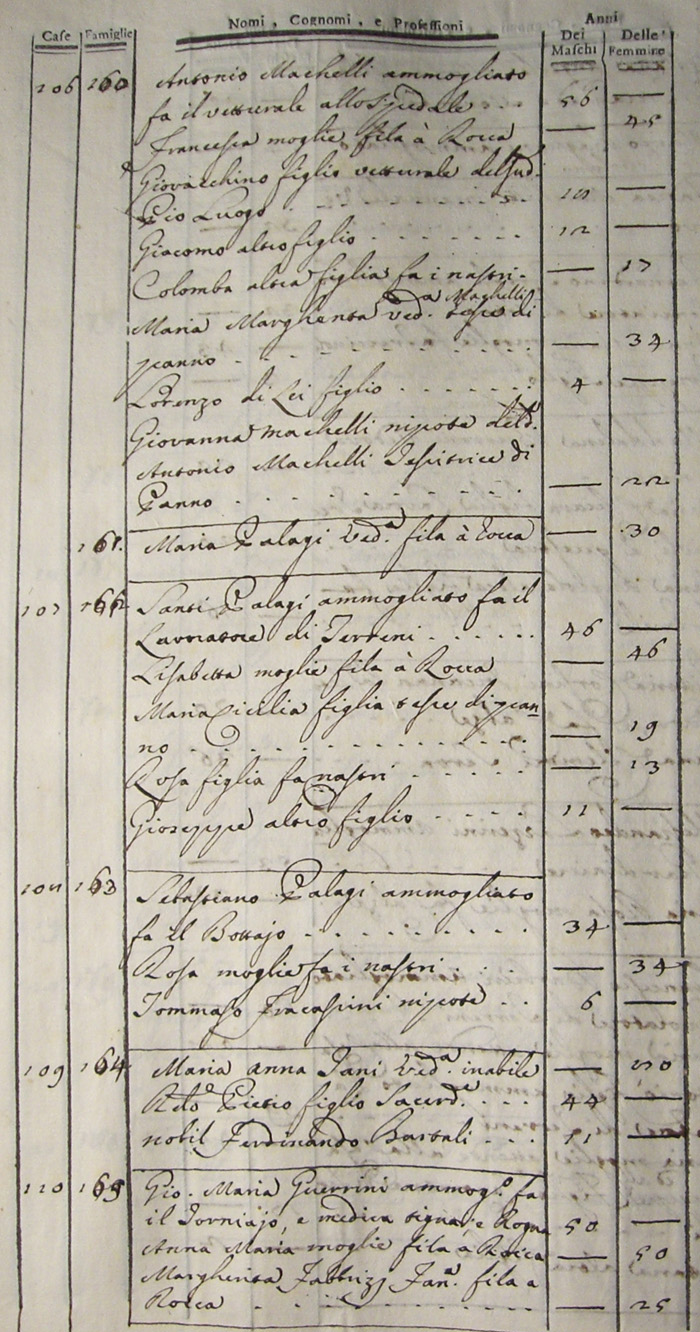 Case Famiglie Nomi, Cognomi, e Professioni Anni
Dei Maschi Delle Femmine
106 160 Antonio Machelli ammogliato
fa il vetturale allo Spedale 56 —
Francesca moglie fila à Rocca — 45
Giovacchino figlio vetturale del sud.
Pio Luogo —
Giacomo altro figlio 12 —
Colomba altra figlia fa i nastri — 17
Maria Margherita ved.a Maghelli tesse di
panno — 34
Lorenzo di Lei figlio 4 —
Giovanna Machelli nipote del d.
Antonio Machelli Tessitrice di
Panno — 22
161. Maria Palagi Ved.a fila à Rocca — 30
107 162 Santi Palagi ammogliato fa il
Lavoratore di Terreni 46 —
Lisabetta moglie fila à Rocca — 46
Maria Cicilia figlia tesse di pan=
no — 19
Rosa figlia fa nastri — 13
Gioseppe altro figlio 11 —
108 163 Sebastiano Palagi ammogliato
fa il Bottajo 34 —
Rosa moglie fa i nastri — 34
Tommaso Fracassini nipote 6 —
109 164 Maria anna Tani Ved.a inabile —
Rdo Pietro figlio Sacerd.e 44 —
nobil Ferdinando Bartali 11 —
110 165 Gio. Maria Guerrini ammog.o fa
il Torniajo, e medica tigna, e Rogna 50 —
Anna Maria moglie fila à Rocca — 50
Margherita Fabbrizj Fan.a fila a
Rocca — 25